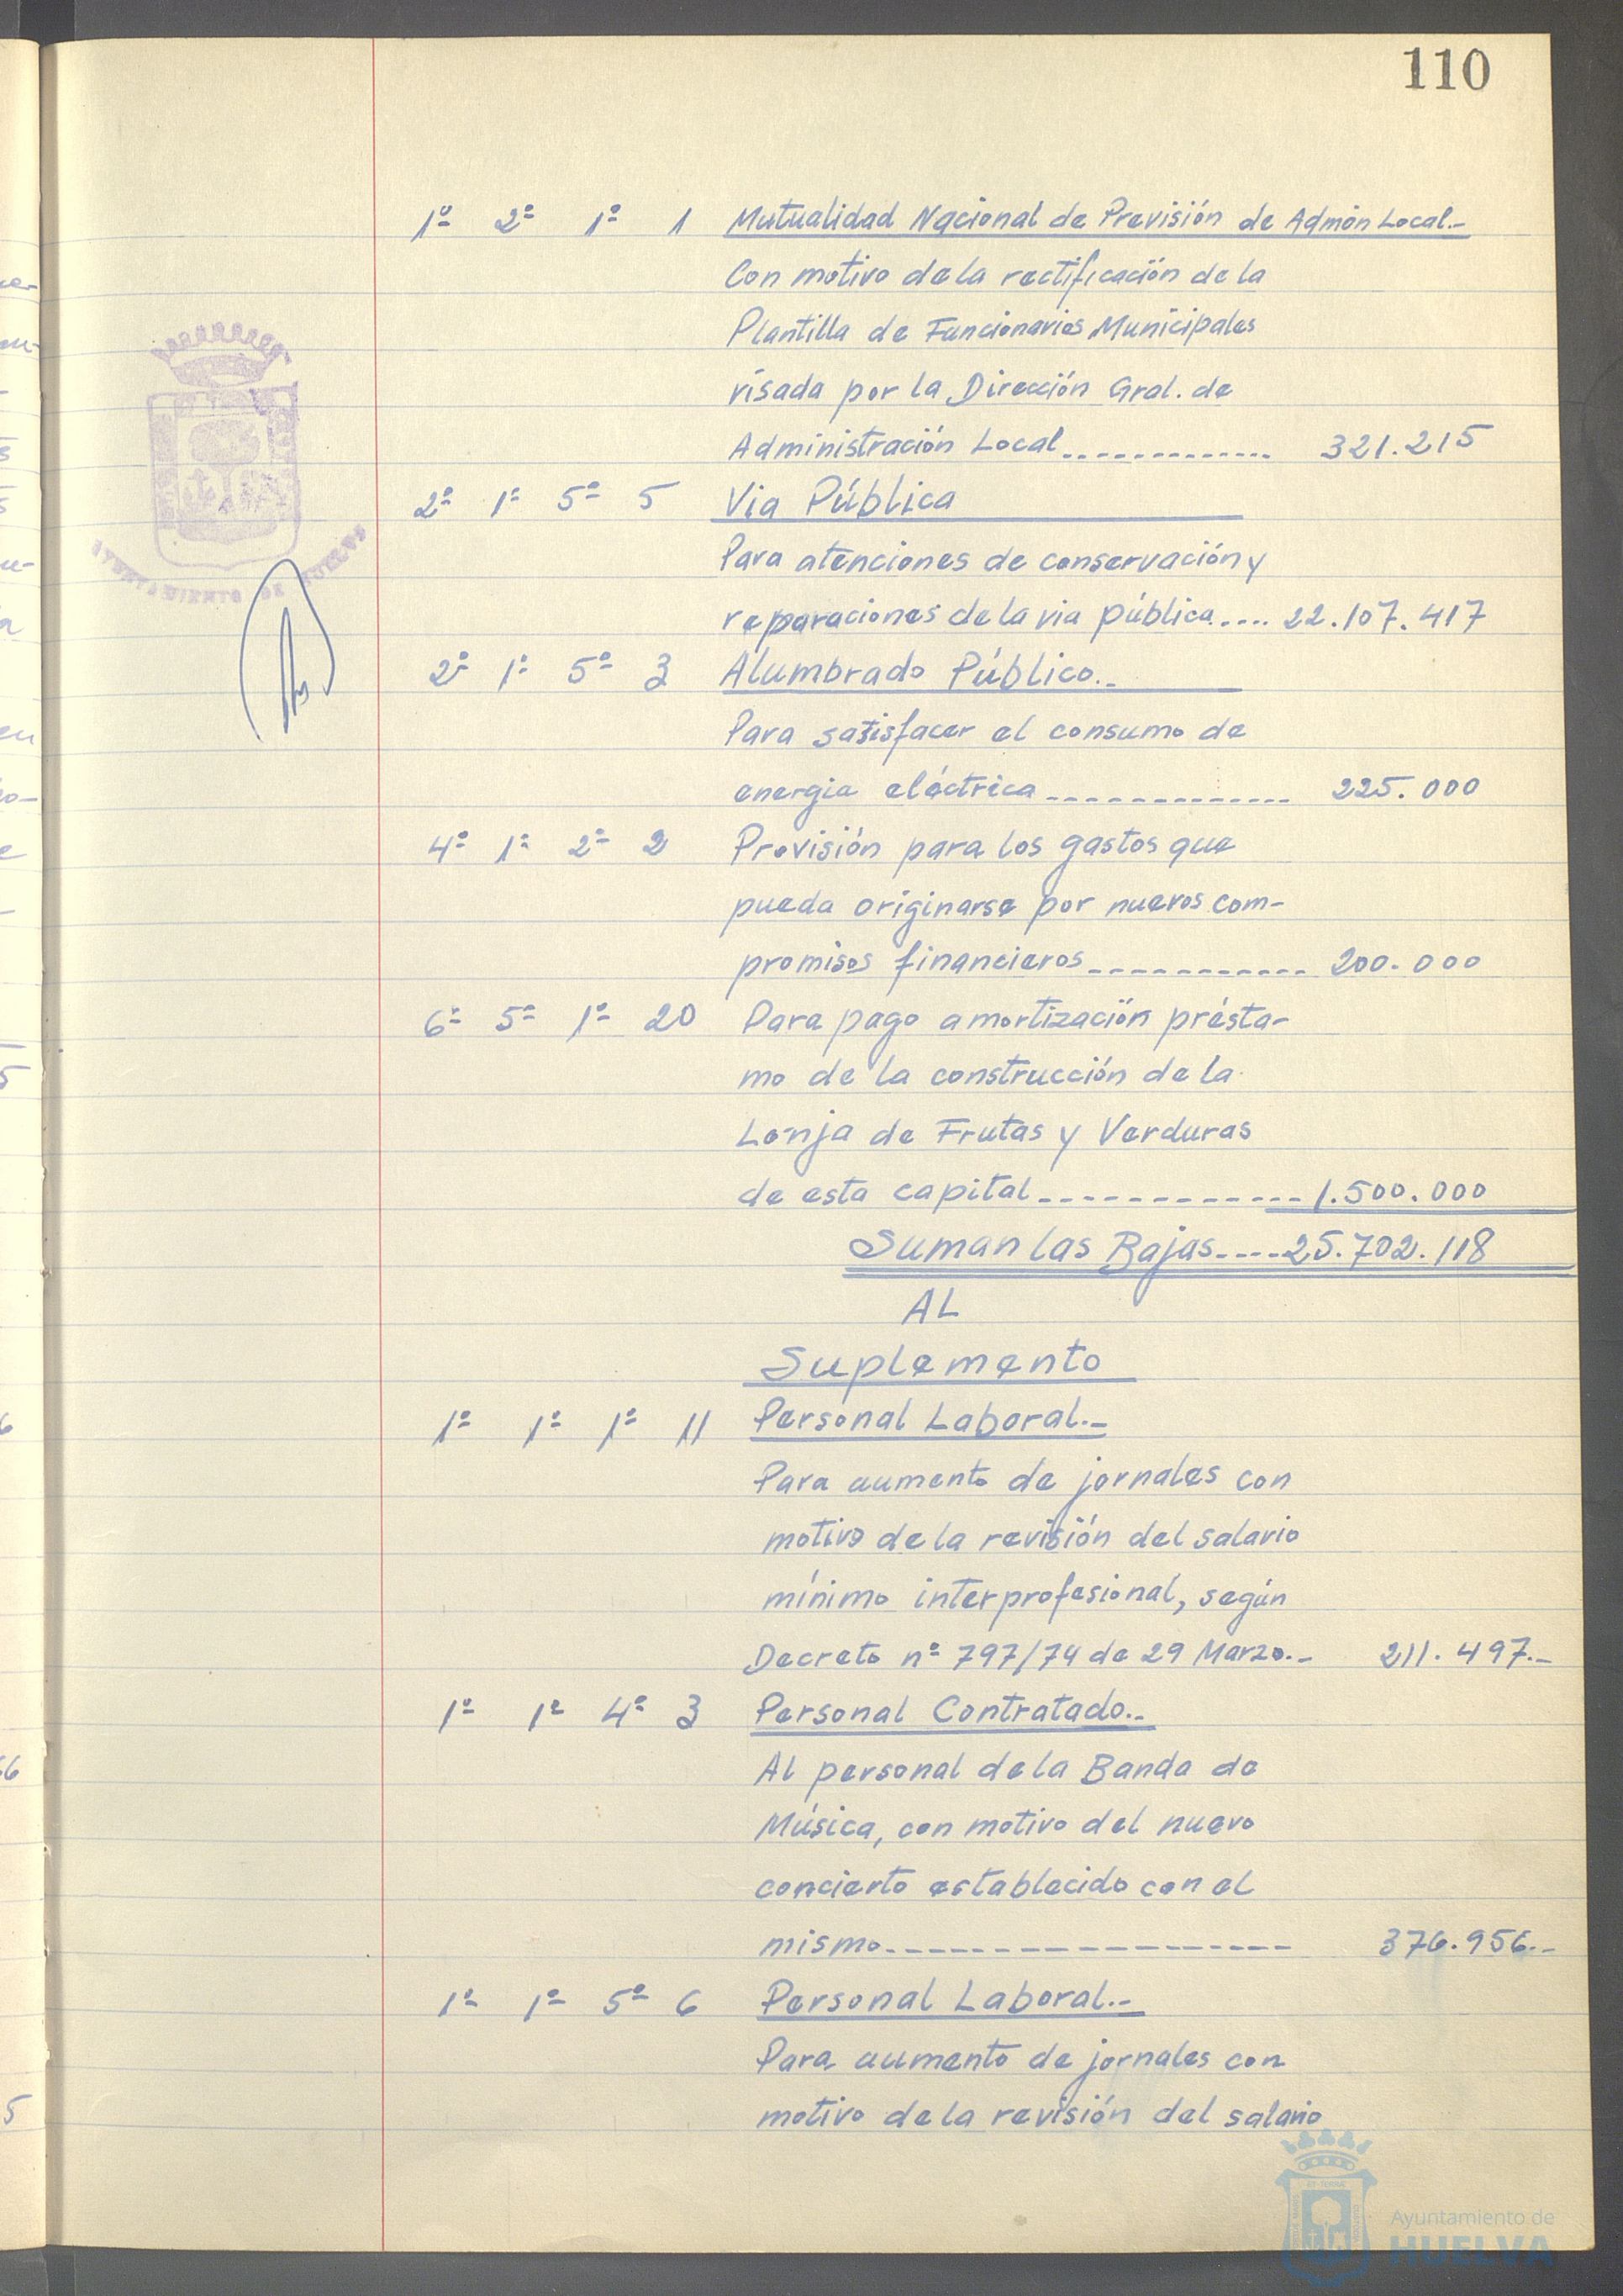 110
1º 2º 1º 1 Mutualidad Nacional de Previsión de Admón Local.-
Con motivo de la rectificación de la
Plantilla de Funcionarios Municipales
visada por la Dirección Gral. de
Administración Local............. 321.215
2º 1º 5º 5 Via Pública
Para atenciones de conservación y
reparaciones de la via pública..... 22.107.417
2º 1º 5º 3 Alumbrado Público.-
Para satisfacer el consumo de
energia eléctrica............. 225.000
4º 1º 2º 2 Provisión para los gastos que
pueda originarse por nuevos com-
promisos financieros............ 200.000
6º 5º 1º 20 Para pago amortización présta-
mo de la construcción de la
Lonja de Frutas y Verduras
de esta capital............. 1.500.000
Suman las Bajas....25.702.118
AL
Suplemento
1º 1º 1º 11 Personal Laboral.-
Para aumento de jornales con
motivo de la revisión del salario
mínimo interprofesional, según
Decreto nº 797/74 de 29 Marzo.- 211.497.-
1º 1º 4º 3 Personal Contratado.-
Al personal de la Banda de
Música, con motivo del nuevo
concierto establecido con el
mismo.................. 376.956.-
1º 1º 5º 6 Personal Laboral.-
Para aumento de jornales con
motivo de la revisión del salario
AYUNTAMIENTO DE HUELVA
Ayuntamiento de
HUELVA